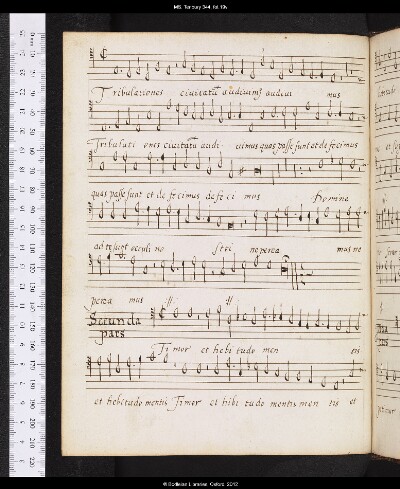 MS. Tenbury 344, fol. 19v
Tribulationes civitatū audivimꝰ audivi mus
Tribulati ones civitatū audi vimus quas passe sunt et defecimus
quas passe sunt et defecimus defeci mus Domine
ad te sunt occuli no stri ne perea mus ne
perea mus :||: :||:
Secunda
pars
Timor et hebi tudo men tis
et hebitudo mentis Timor et hibi tudo mentis men tis et
© Bodleian Libraries, Oxford, 2012